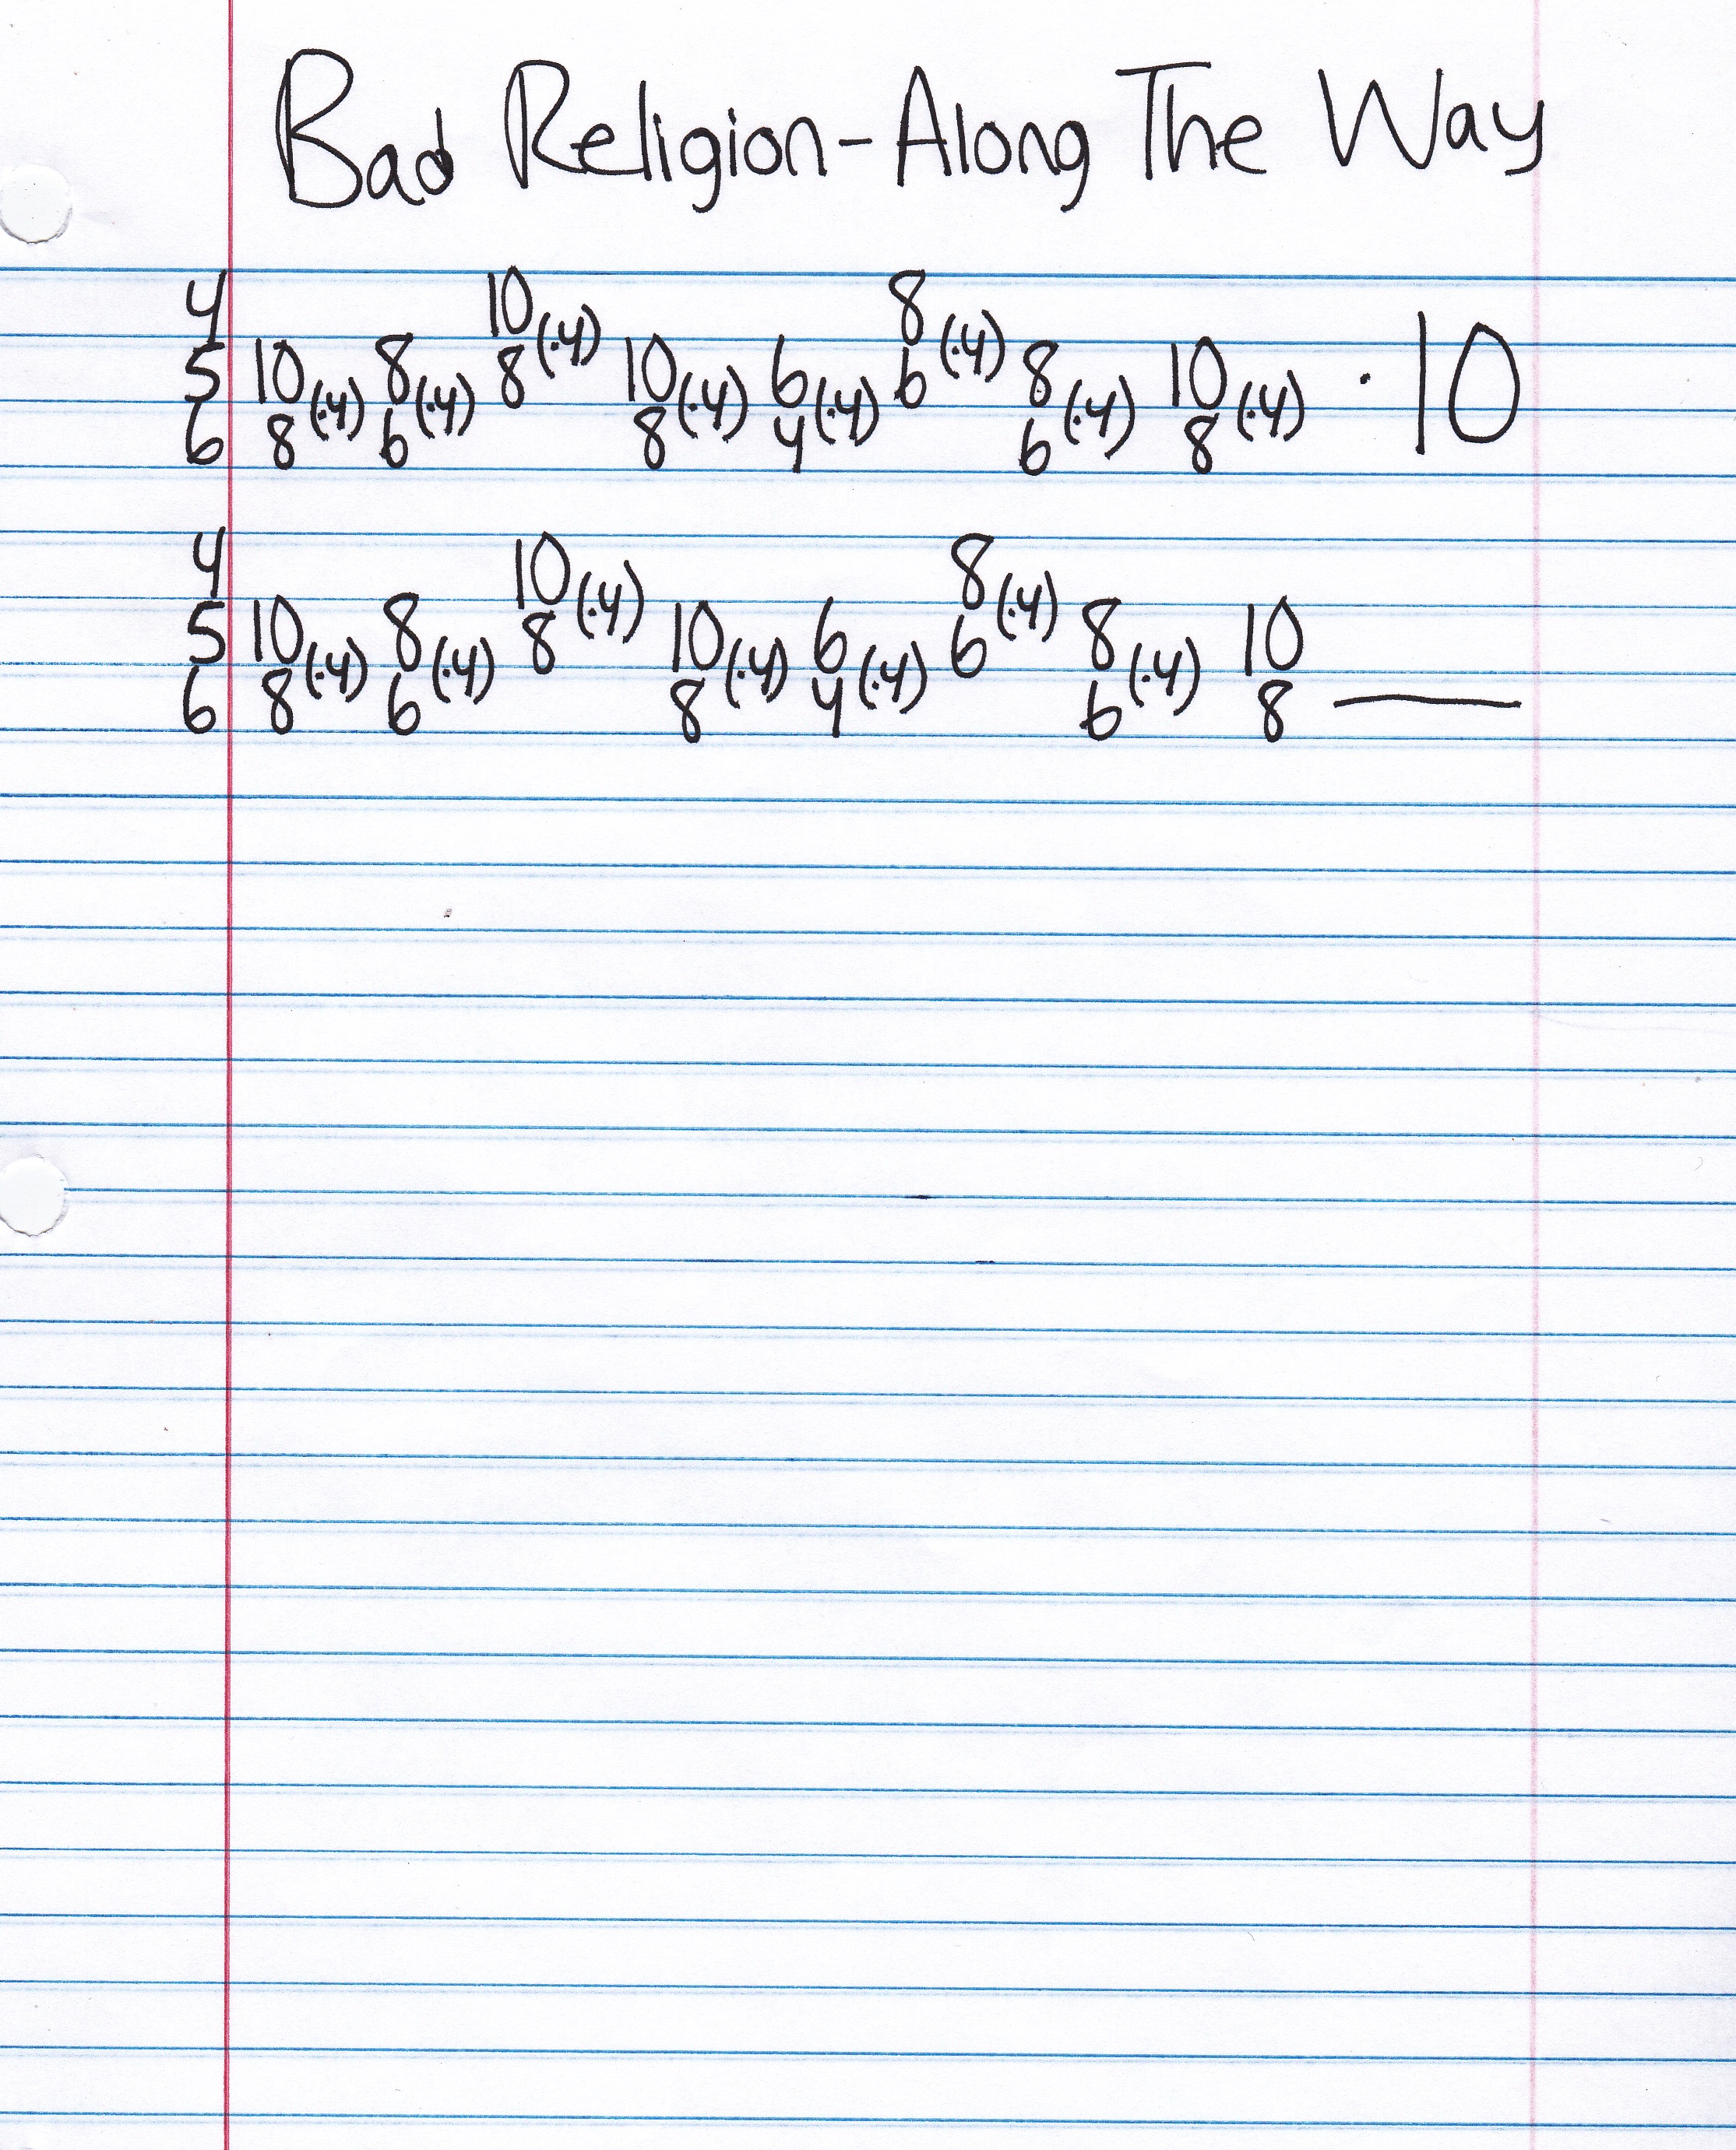 Bad Religion - Along The Way
4 10 (·4) 8 (·4)
5 10 (·4) 8 (·4) 8 10 (·4) 6 (·4) 6 8 (·4) 10 (·4) · 10
6 8 6 8 4 6 8
4 10 (·4) 8 (·4)
5 10 (·4) 8 (·4) 8 10 (·4) 6 (·4) 6 8 (·4) 10
6 8 6 8 4 6 8 —